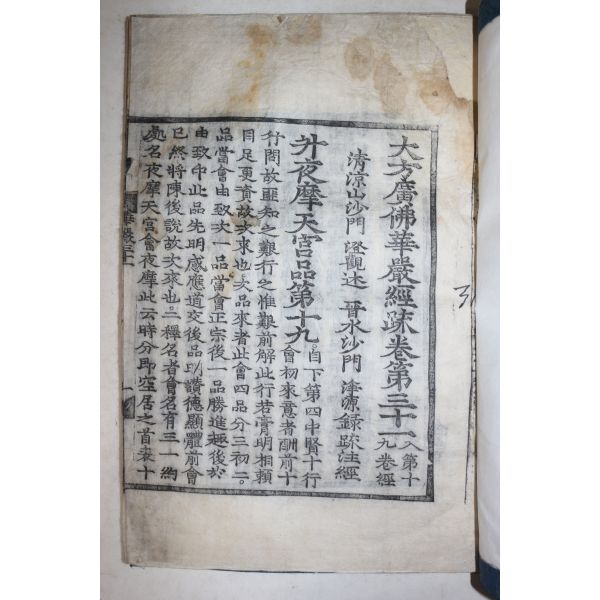 大方廣佛華嚴經疏卷第三十一 入第十
九卷經
清凉山沙門 澄觀述 晉水沙門 淨源錄疏注經
升夜摩天宮品第十九 自下第四中賢十行
會初來意者酬前十
行問故匪知之艱行之惟艱前解此行若膏明相賴
目足更資故次來也次品來者此會四品分三初二
品當會由致次一品當會正宗後一品勝進趣後於
由致中此品先明感應道交後品助讚德顯體前會
已終將陳後說故次來也二釋名者會名有三一約
處名夜摩天宮會夜摩此云時分即空居之首表十